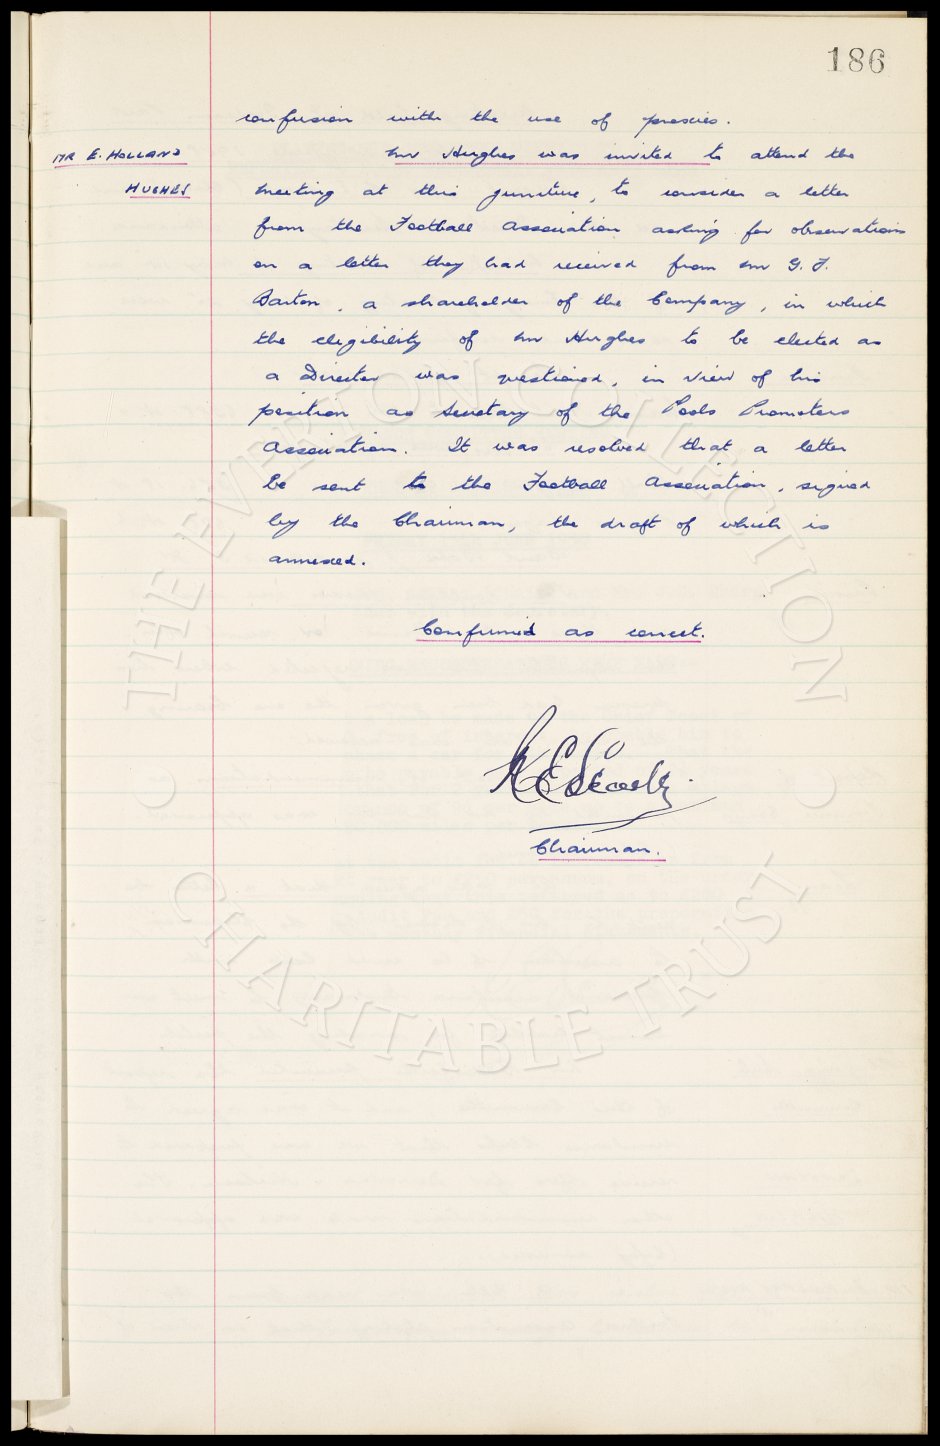 186
confusion with the use of proxies.
MR E. HOLLAND
HUGHES
Mr Hughes was invited to attend the
meeting at this juncture, to consider a letter
from the Football Association asking for observations
on a letter they had received from Mr G. F.
Barton, a shareholder of the Company, in which
the eligibility of Mr Hughes to be elected as
a Director was questioned, in view of his
position as Secretary of the Pools Promoters
Association. It was resolved that a letter
be sent to the Football Association, signed
by the Chairman, the draft of which is
annexed.
Confirmed as correct.
Chairman.
THE EVERTON COLLECTION
CHARITABLE TRUST